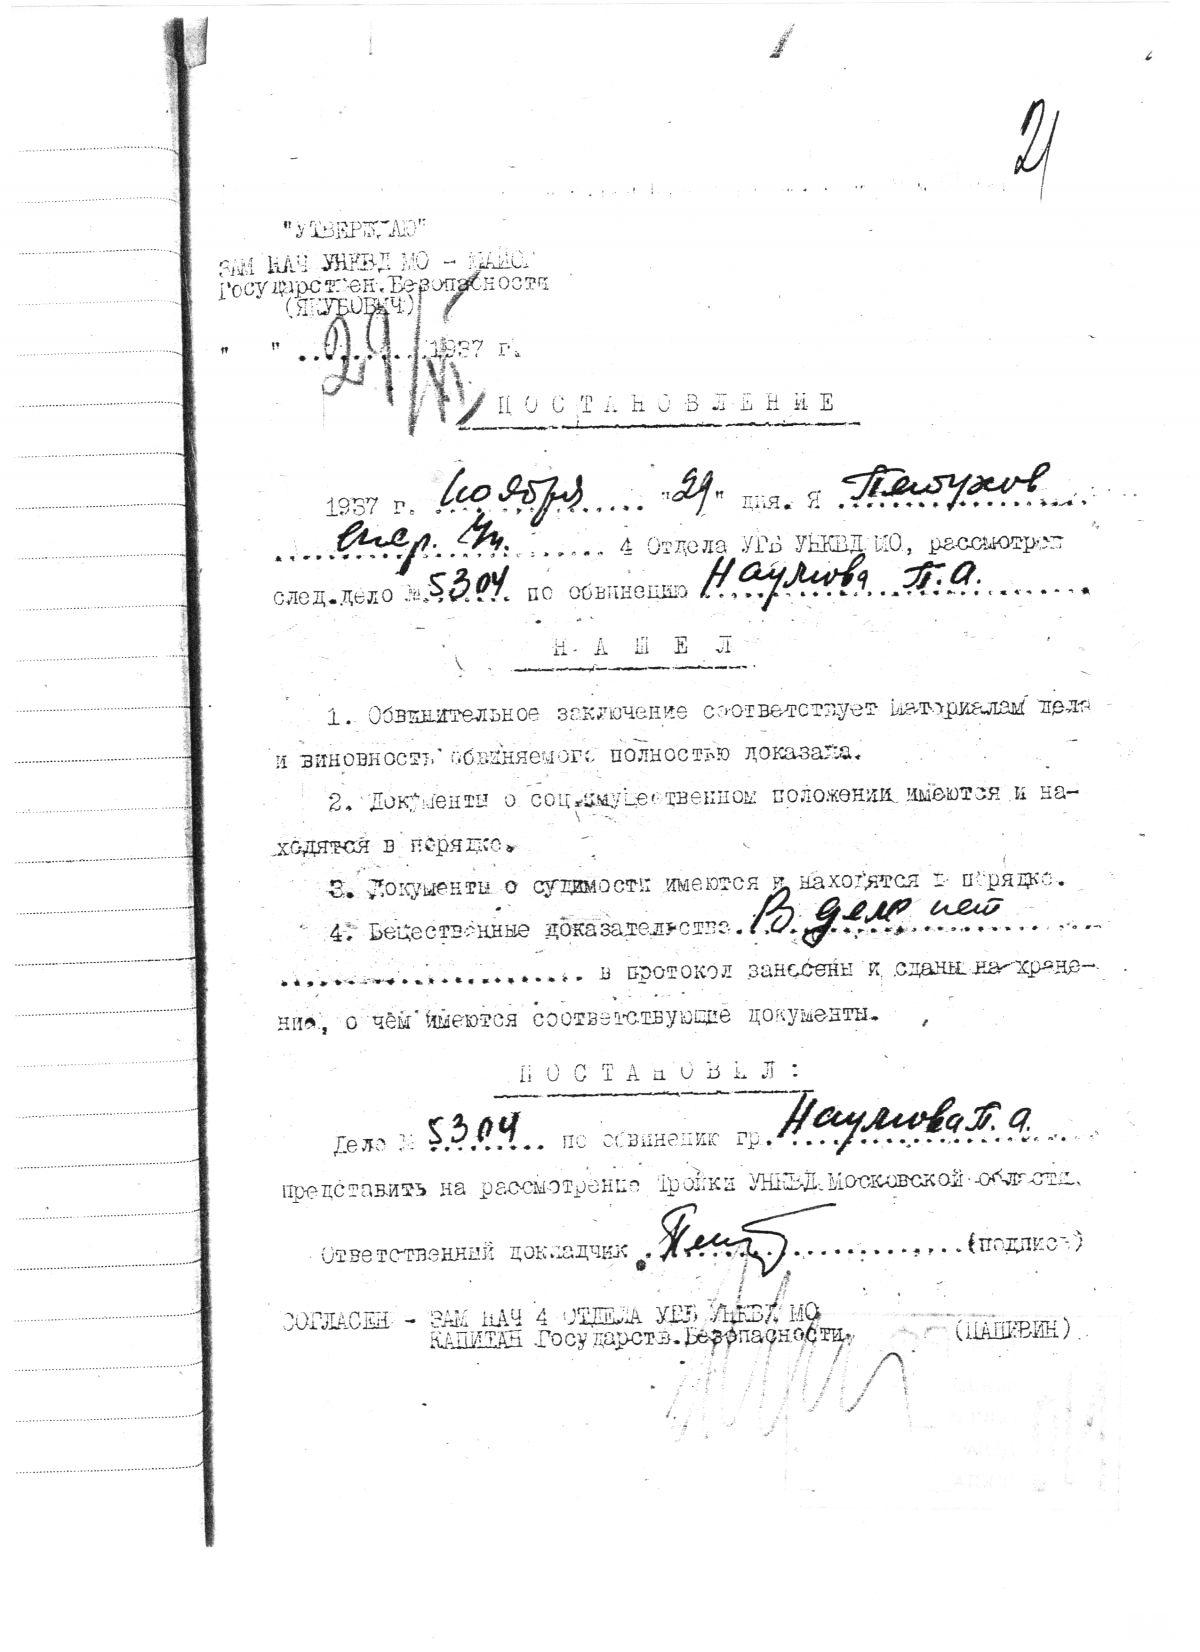 21
"УТВЕРЖДАЮ"
ЗАМ НАЧ УНКВД МО - МАЙОР
Государствен.Безопасности
(ЯКУБОВИЧ)
" " 29/XI 1937 г.
ПОСТАНОВЛЕНИЕ
1937 г. ноября "29" дня. Я Петухов
опер. Уп. 4 Отдела УГБ УНКВД МО, рассмотрев
след.дело № 5304 по обвинению Наумова П.А.
НАШЕЛ
1. Обвинительное заключение соответствует материалам дела
и виновность обвиняемого полностью доказана.
2. Документы о соц.имущественном положении имеются и на-
ходятся в порядке.
3. Документы о судимости имеются и находятся в порядке.
4. Вещественные доказательства В деле нет
в протокол занесены и сданы на хране-
ние, о чём имеются соответствующие документы.
ПОСТАНОВИЛ:
Дело № 5304 по обвинению гр. Наумова П.А.
представить на рассмотрение Тройки УНКВД Московской области.
Ответственный докладчик (подпись)
СОГЛАСЕН - ЗАМ НАЧ 4 ОТДЕЛА УГБ УНКВД МО
КАПИТАН Государств.Безопасности (ПАПИВИН)